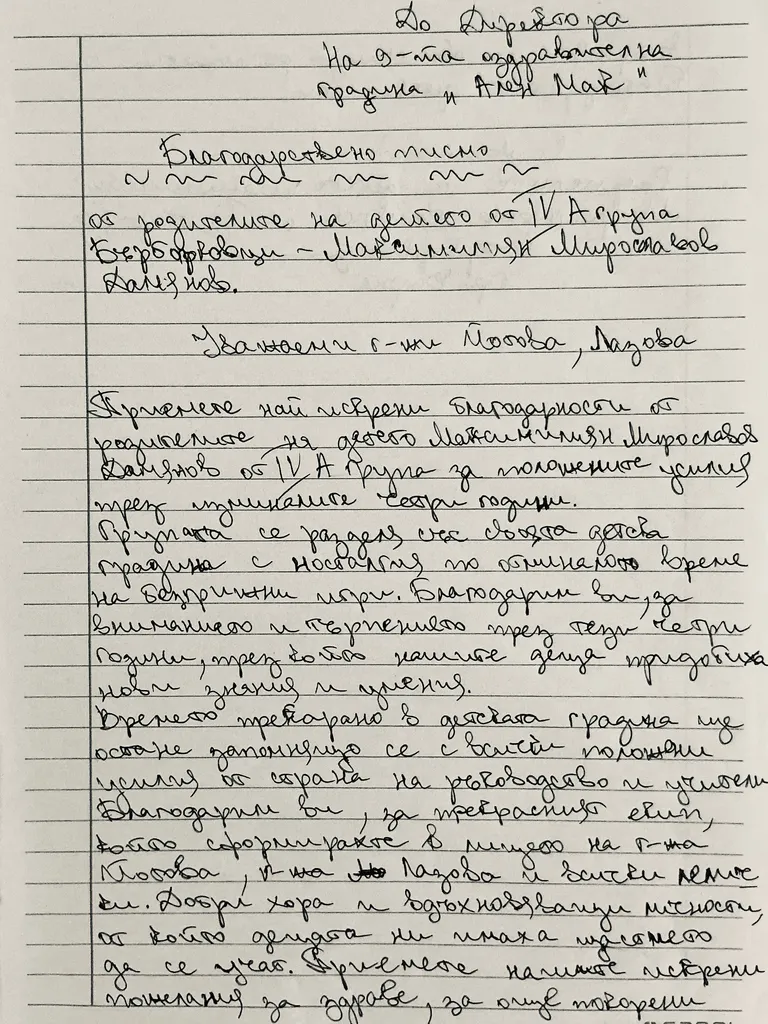 До Директора
На 9-та оздравителна
градина „Ален Мак"
Благодарствено писмо
от родителите на детето от IV А група
Бърборковци - Максимилиян Мирославов
Дамянов.
Уважаеми г-жи Йотова, Лазова
Приемете най искрени благодарности от
родителите на детето Максимилиян Мирославов
Дамянов от IV А група за положените усилия
през изминалите четри години.
Групата се разделя със своята детска
градина с носталгия по отминалото време
на безгрижни игри. Благодарим ви, за
вниманието и търпението през тези четри
години, през който нашите деца придобиха
нови знания и умения.
Времето прекарано в детската градина ще
остане запомнящо се с всички положени
усилия от страна на ръководство и учители
Благодарим ви, за прекрасният екип,
който сформирахте в лицето на г-жа
Йотова, г-жа Лазова и всички лелич
ки. Добри хора и вдъхновяващи личности,
от който децата ни имаха щастието
да се учат. Приемете нашите искрени
пожелания за здраве, за още покорени